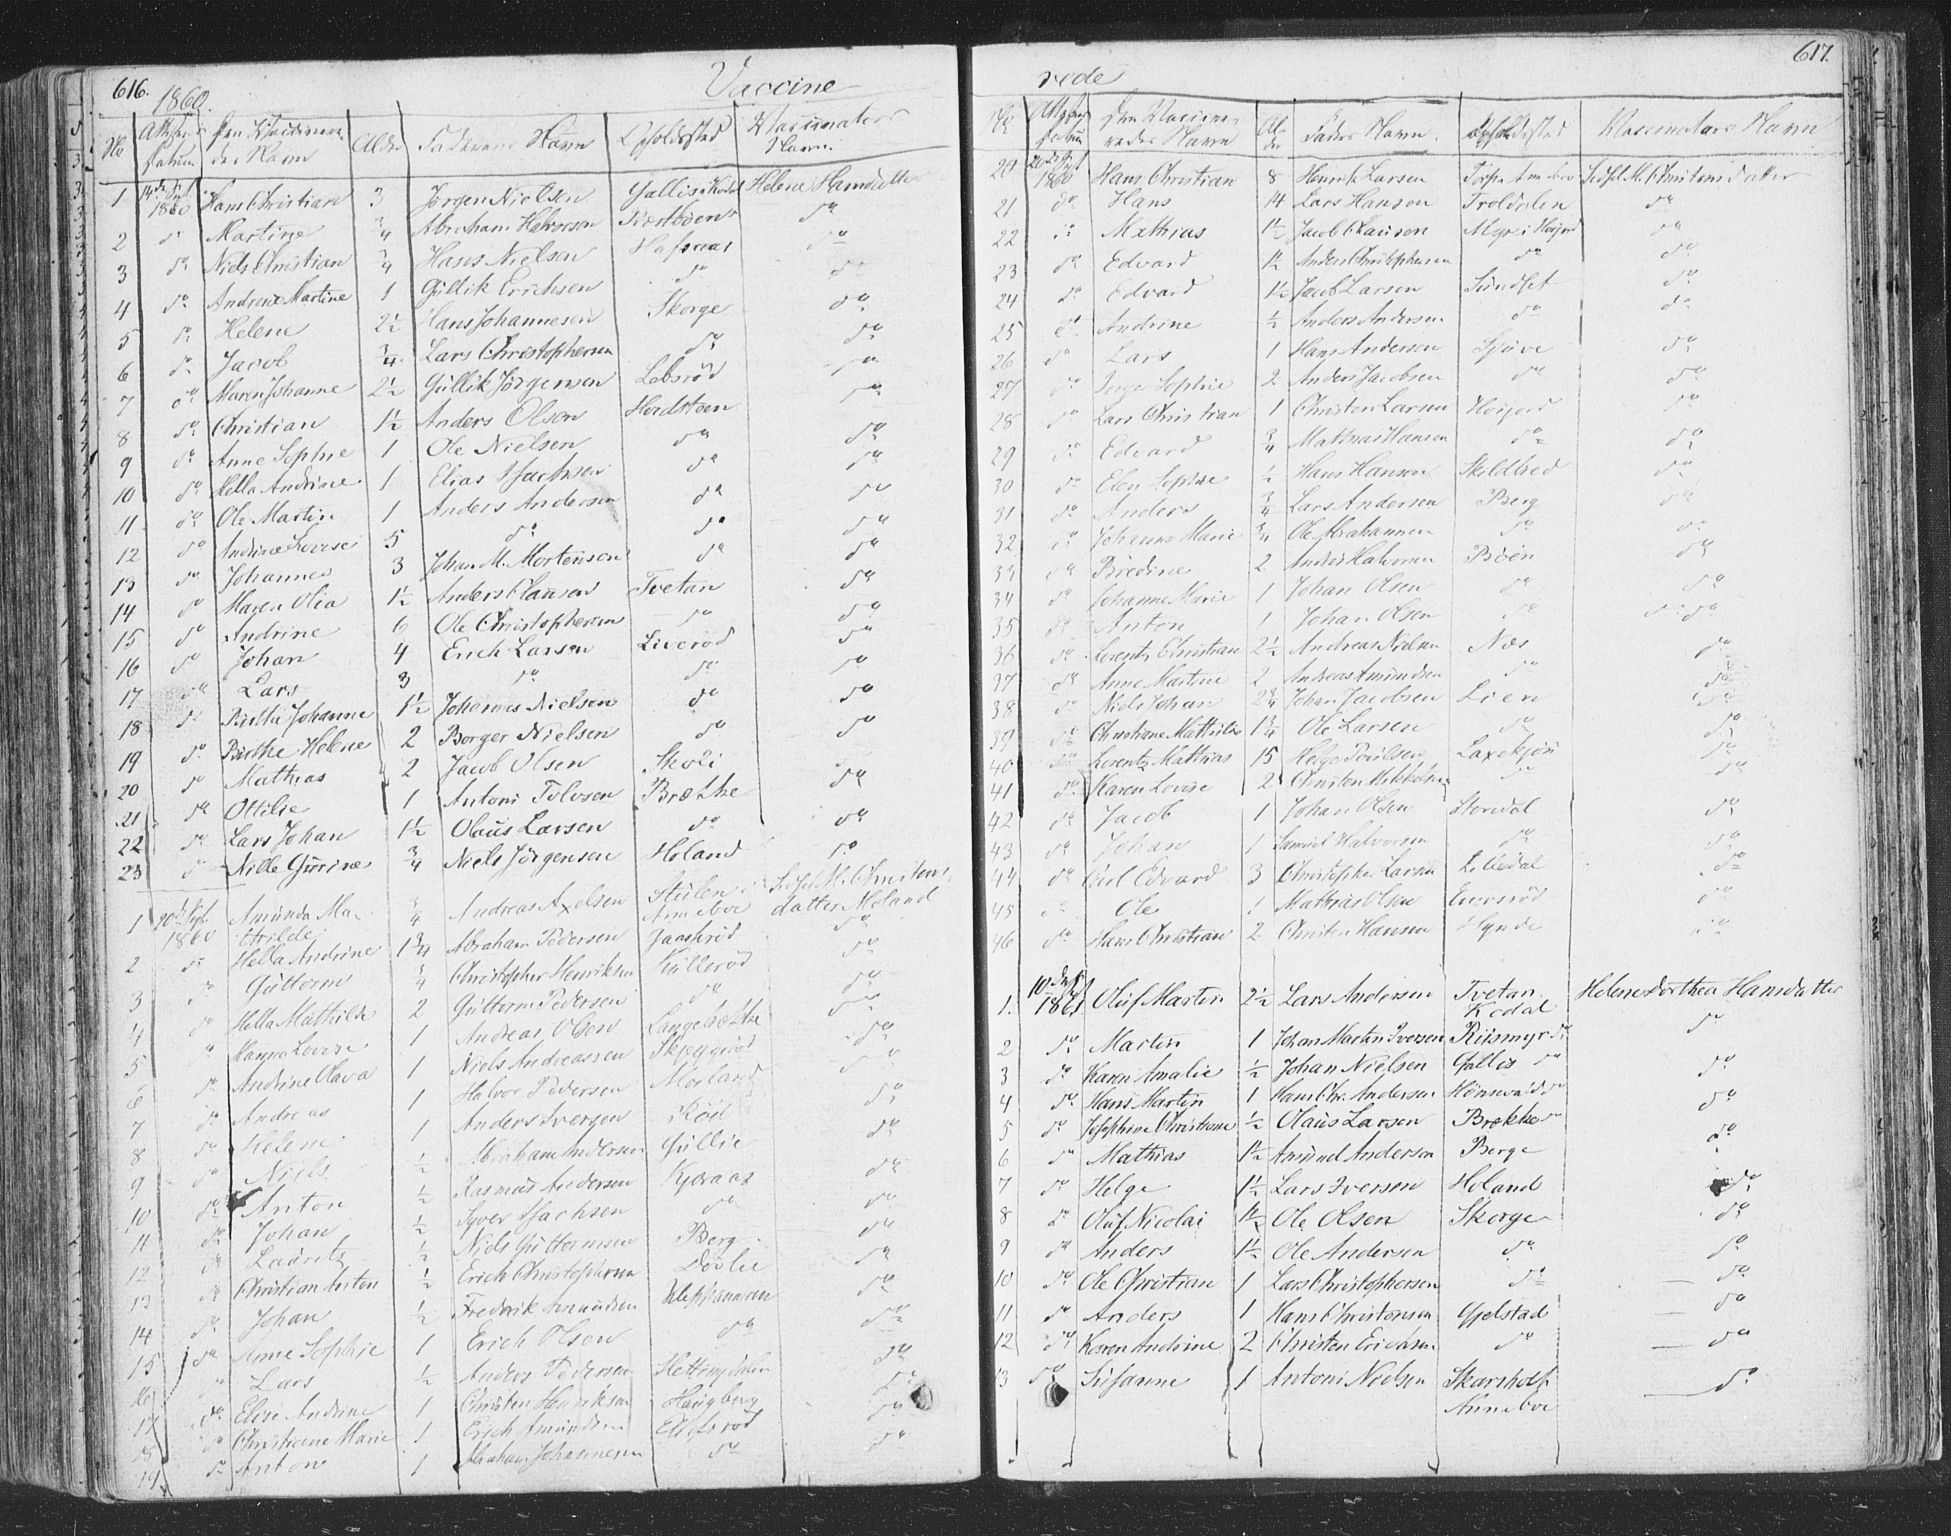 616.
1860.
Vaccine
No Attestens Datum Den Vaccinerede Navn Alder Faderens Navn Opholdssted Vaccinators Navn
1 14de Sept 1860 Hans Christian 3 Jørgen Nielsen Gallis i Kodal Helene Hansdatter
2 do Martine 3/4 Abraham Halvorsen do
3 do Niels Christian 3/4 Hans Nielsen do
4 do Andrene Martine 1 Gullik Erichsen do
5 do Helene 2½ Hans Johannesen Skorge do
6 do Jacob 3/4 Lars Christophersen do do
7 do Maren Johanne 2½ Gullik Jørgensen do
8 do Christian 1½ Anders Olsen do
9 do Anne Sophie 1 Ole Nielsen do do
10 do Hella Andrine 1 Elias Isachsen do do
11 do Ole Martin 1 Anders Andersen do do
12 do Andrine Lovise 5 do do do
13 do Johannes 3 Johan M. Mortensen do do
14 do Maren Olia 1½ Anders Clausen Tvetan do
15 do Andrine 6 Ole Christophersen do do
16 do Johan 4 Erich Larsen Liverød do
17 do Lars 3 do do do
18 do Birthe Johanne 1½ Johannes Nielsen do do
19 do Birthe Helene 2 Borger Nielsen do do
20 do Mathias 2 Jacob Olsen Skoli
21 do Ottilie 1 Antoni Tolvsen Brække do
22 do Lars Johan 1½ Olaus Larsen do do
23 do Nille Gurine 3/4 Niels Jørgensen Holand do
1 20de Sept. 1860 Amunda Mathilde 3/4 Andreas Axelsen Anneboe M. Christensdatter Moland
2 do Hella Andrine 1 3/4 Abraham Pedersen do
3 do Guttorm 3/4 Christopher Henriksen Kullerød do
4 do Hella Mathilde 2 Guttorm Pedersen do do
5 do Hanna Lovise 1 Andreas Olsen Langebrække do
6 do Andrine Olava 1 Niels Andreassen do
7 do Andreas 1 Halvor Pedersen Moland do
8 do Helene 1 Anders Iversen do
9 do Niels ½ Abraham Andersen Gullie do
10 do Anton ½ Rasmus Andersen Kjæraas do
11 do Johan ½ Syver Isachsen do do
12 do Laurits ½ Niels Guttormsen Berg do
13 do Christian Anton ½ Erich Christophersen Dovlie do
14 do Johan ½ Frederik Amundsen do
15 do Anne Sophie 1 Erich Olsen do do
16 do Lars ½ Anders Pedersen do
17 do Elise Andrine 1 Christen Henriksen Haugberg do
18 do Christiane Marie 1 Erich Amundsen do
19 do Anton 1 Abraham Johannesen do do
617.
rede
No Attestens Datum Den Vaccinerede Navn Alder Faders Navn Opholdssted Vaccinators Navn
20 20de Sept 1860 Hans Christian 8 Henrik Larsen Torp i Anneboe M. Christensdatter
21 do Hans 14 Lars Hansen Troldalen do
22 do Mathias 1½ Jacob Clausen Myre i Høijord do
23 do Edvard 1½ Anders Christophersen do do
24 do Edvard 1½ Jacob Larsen Sundset do
25 do Andrine ½ Anders Andersen do do
26 do Lars 1 Hans Andersen do
27 do Sophie 2 Anders Jacobsen do do
28 do Lars Christian 1 Christen Larsen Høijord do
29 do Edvard 3/4 Mathias Hansen do do
30 do Elen Sophie ½ Hans Hansen Skildbred do
31 do Anders 3/4 Lars Andersen Berg do
32 do Johanne Marie 3/4 Ole Abrahamsen do do
33 do Bredine 2 Anders Halvorsen Böen do
34 do Johanne Marie 1 Johan Olsen do do
35 do Anton 1 Johan Olsen do do
36 do Lorentz Christian 2½ Andreas Nielsen Næs do
37 do Anne Martine 2 Andreas Amundsen do do
38 do Niels Johan 2 3/4 Johan Jacobsen Lien do
39 do Christiane Mathilde 1 3/4 Ole Larsen do do
40 do Lorentz Mathias 15 Helge Poulsen do
41 do Karen Lovise 2 Christen Mikkelsen do do
42 do Jacob 1 Johan Olsen Stordal do
43 do Johan 1 Samuel Halvorsen do do
44 do Carl Edvard 3 Christopher Larsen Lilledal do
45 do Ole 1 Mathias Olsen do
46 do Hans Christian 2 Christen Hansen Hynde do
1. 10de Sept 1861 Oluf Martin 2½ Lars Andersen Tvetan Kodal Helene Dorthea Hansdatter
2 do Martin 1 Johan Martin Iversen Riismyr do do
3 do Karen Amalie ½ Johan Nielsen Gallis do do
4 do Hans Martin 1 Hans Chr. Andersen do
5 do Josephine Christiane ½ Olaus Larsen Brække do do
6 do Mathias 1½ Amund Andersen Berge do
7 do Helge 1½ Lars Iversen Holand do
8 do Oluf Nicolai 1½ Ole Olsen Skorge do
9 do Anders 1½ Ole Andersen do do
10 do Ole Christian 1 Lars Christophersen do do
11 do Anders 1 Hans Christensen Gjelstad do
12 do Karen Andrine 2 Christen Erichsen do do
13 do Susanne 1 Antoni Nielsen Skarsholt Anneboe do